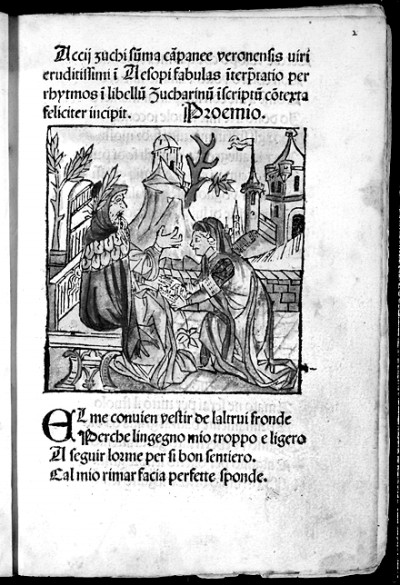 2
Accij zuchi sūma cāpanee veronensis viri
eruditissimi ī Aesopi fabulas īterp̄tatio per
rhytmos ī libellū Zucharinū īscriptū cōtexta
feliciter incipit. Proemio.
EL me conuien vestir de laltrui fronde
Perche lingegno mio troppo e ligero
A seguir lorme per si bon sentiero.
Cal mio rimar facia perfette sponde.